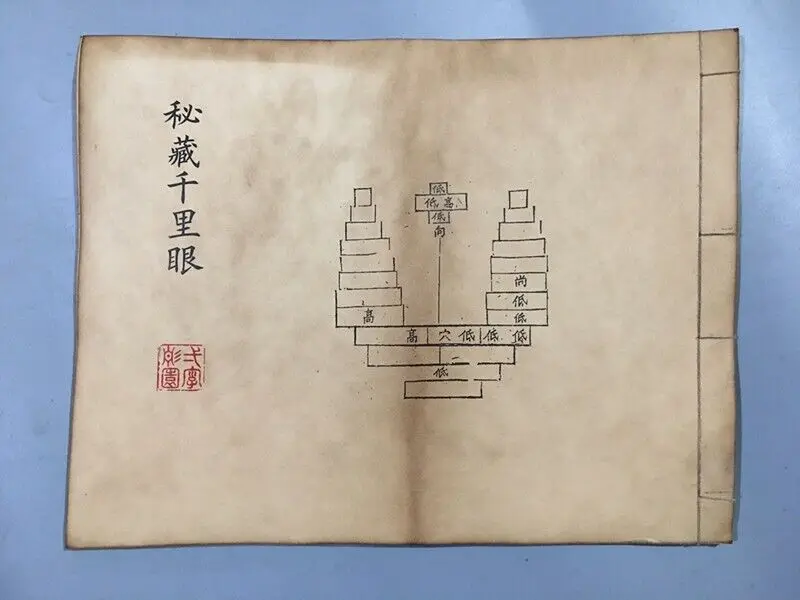 秘藏千里眼
低
低 高
低
向
尚
低
高 低
高 穴 低 低 低
二
低